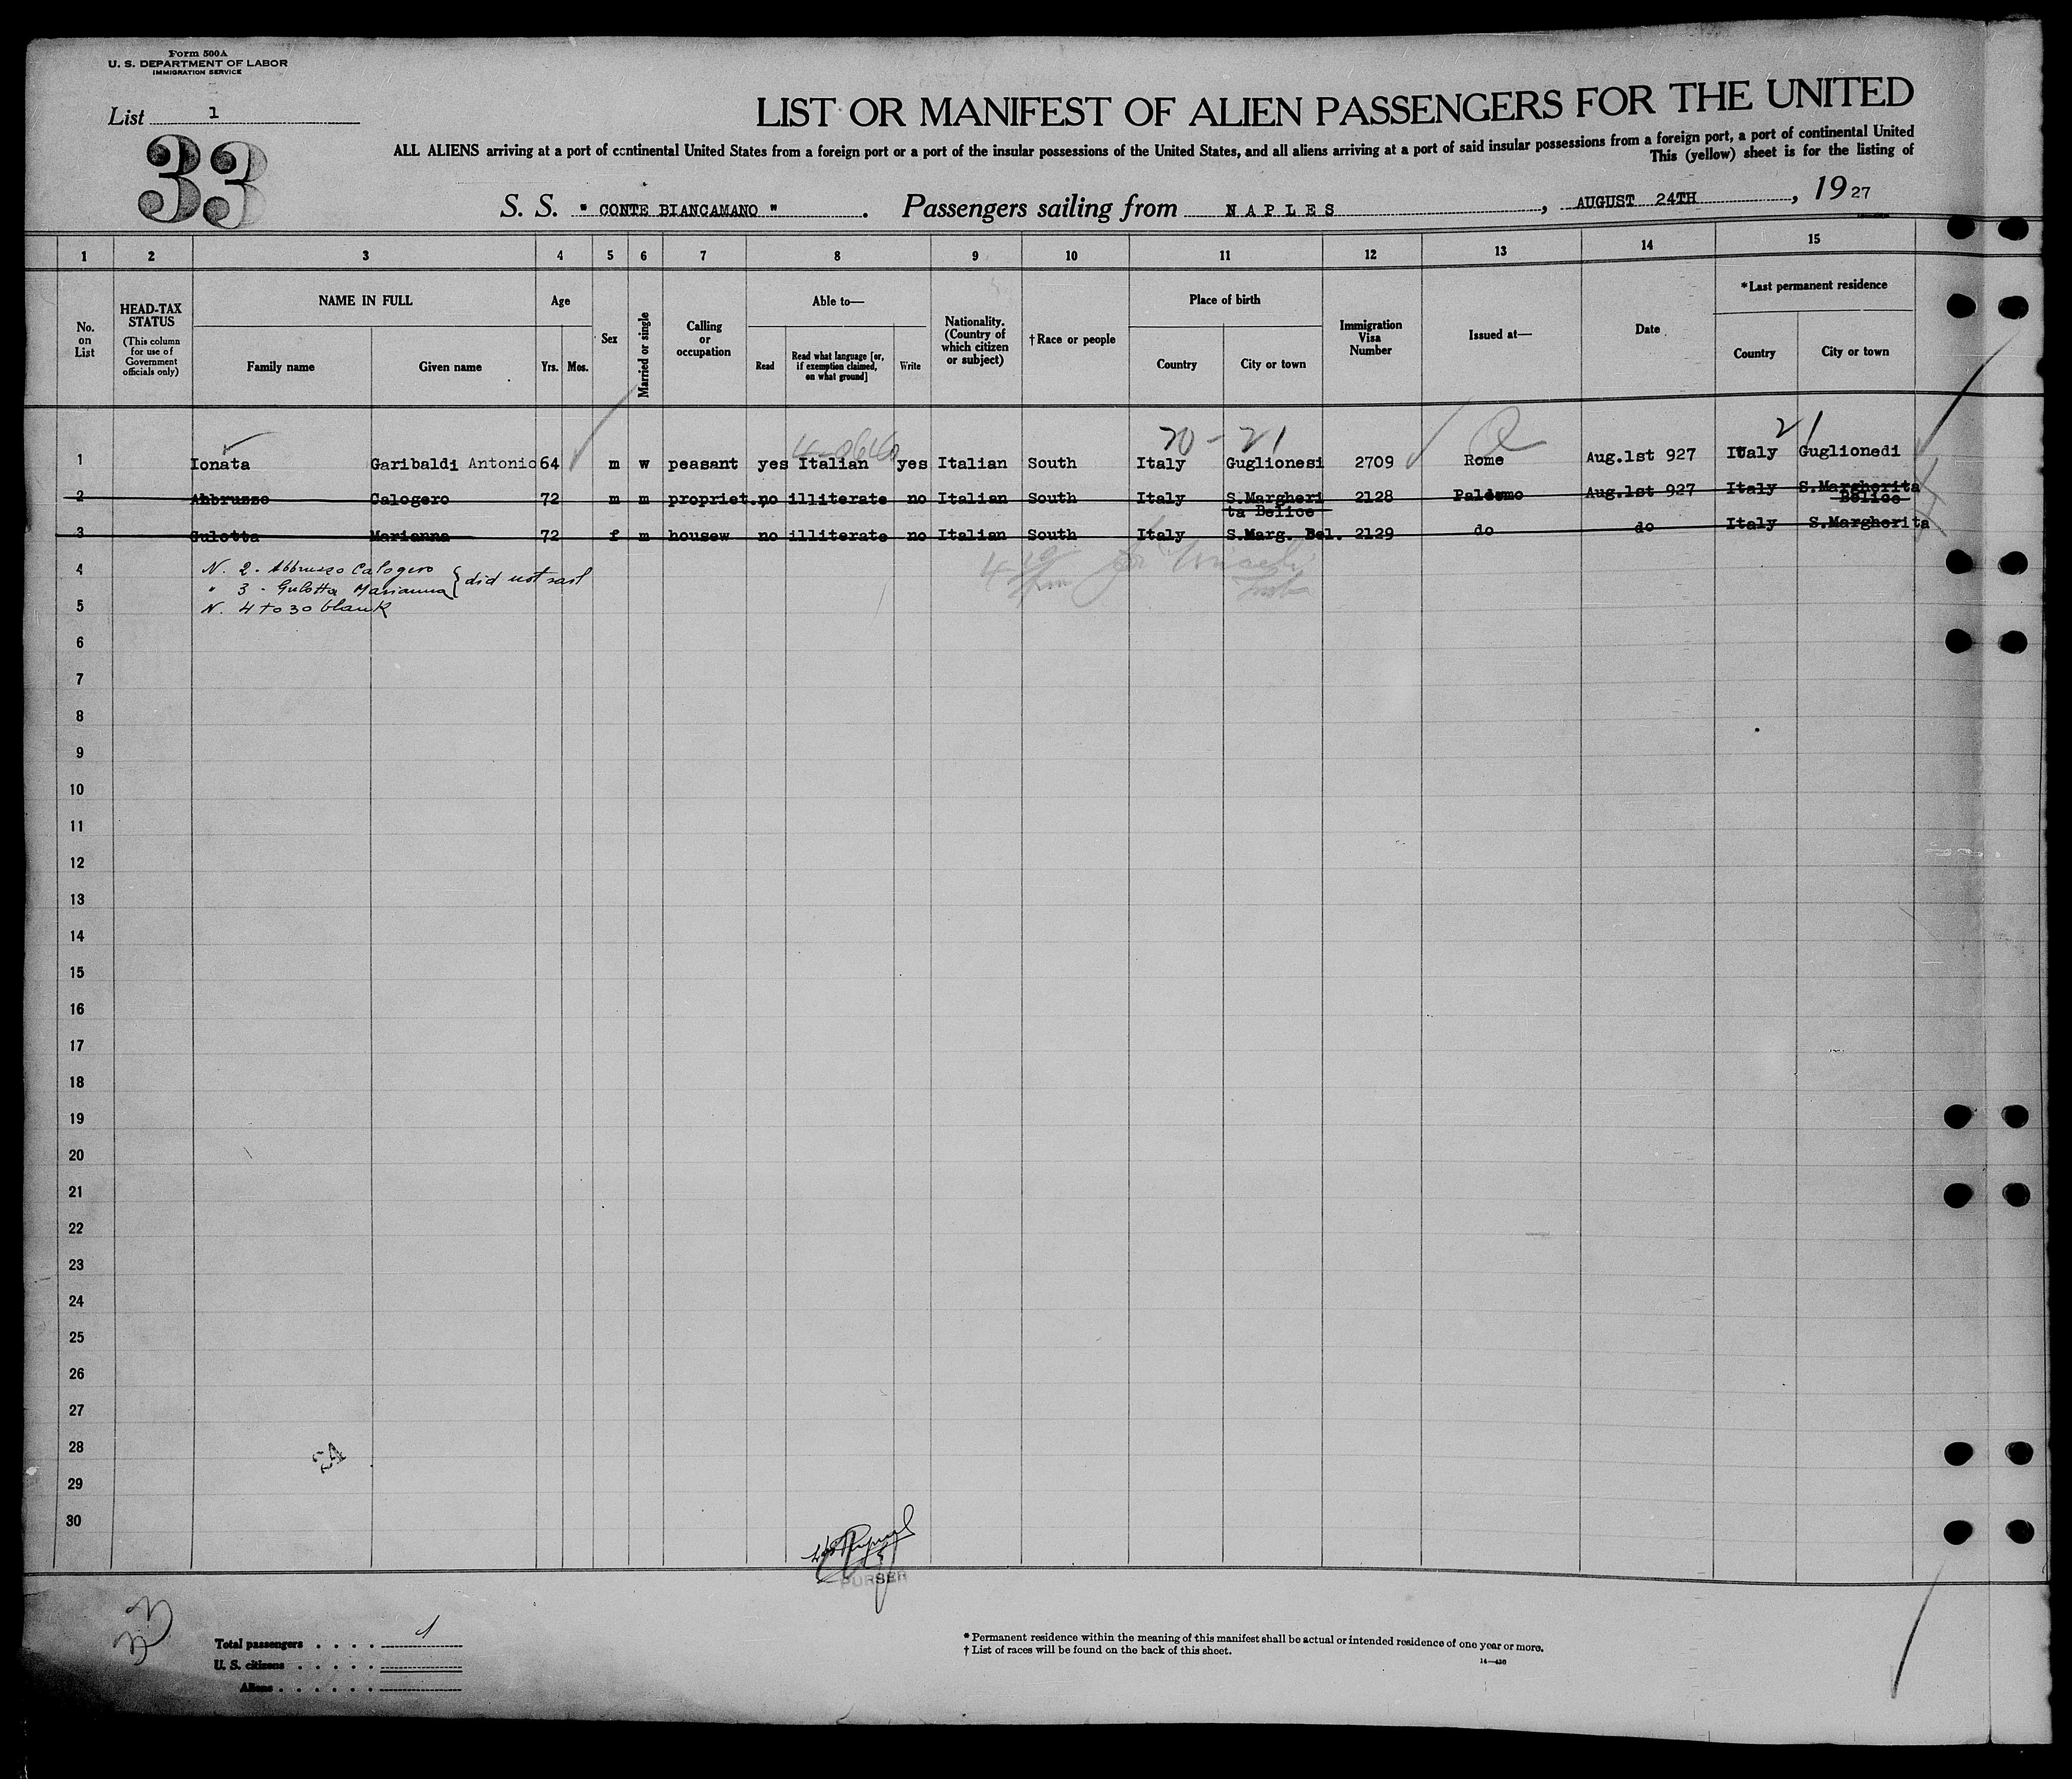 Form 500A
U. S. DEPARTMENT OF LABOR
IMMIGRATION SERVICE
List 1
33
LIST OR MANIFEST OF ALIEN PASSENGERS FOR THE UNITED
ALL ALIENS arriving at a port of continental United States from a foreign port or a port of the insular possessions of the United States, and all aliens arriving at a port of said insular possessions from a foreign port, a port of continental United
This (yellow) sheet is for the listing of
S. S. " CONTE BIANCAMANO " . Passengers sailing from NAPLES , AUGUST 24TH , 1927
1 2 3 4 5 6 7 8 9 10 11 12 13 14 15
No. on List
HEAD-TAX STATUS
(This column for use of Government officials only)
NAME IN FULL
Family name Given name
Age
Yrs. Mos.
Sex
Married or single
Calling or occupation
Able to—
Read
Read what language [or, if exemption claimed, on what ground]
Write
Nationality. (Country of which citizen or subject)
†Race or people
Place of birth
Country City or town
Immigration Visa Number
Issued at—
Date
*Last permanent residence
Country City or town
20 - 21
21
1 Ionata Garibaldi Antonio 64 m w peasant yes Italian yes Italian South Italy Guglionesi 2709 Rome Aug.1st 927 Italy Guglionedi
2 Abbrusso Calogero 72 m m propriet. no illiterate no Italian South Italy S.Margheri ta Belice 2128 Palermo Aug.1st 927 Italy S.Margherita Belice
3 Gulotta Marianna 72 f m housew no illiterate no Italian South Italy S.Marg. Bel. 2129 do do Italy S.Margherita
4 N. 2 - Abbruzzo Calogero
" 3 - Gulotta Marianna } did not sail
5 N. 4 to 30 blank
6
7
8
9
10
11
12
13
14
15
16
17
18
19
20
21
22
23
24
25
26
27
28
29
30
24
PURSER
33
Total passengers . . . . 1
U. S. citizens . . . . .
Aliens . . . . . .
* Permanent residence within the meaning of this manifest shall be actual or intended residence of one year or more.
† List of races will be found on the back of this sheet.
14—430